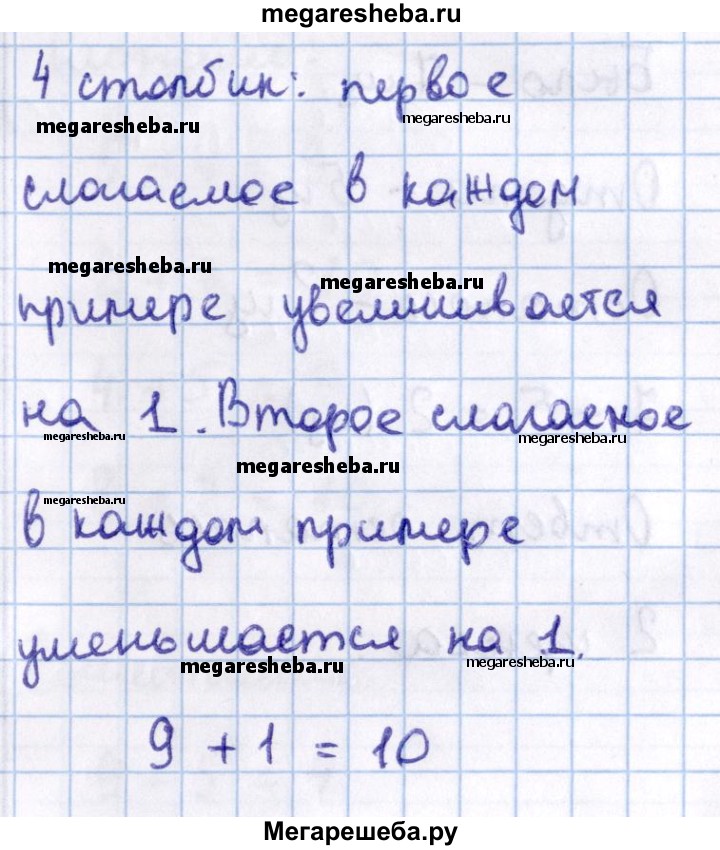 megaresheba.ru
4 столбик: первое
megaresheba.ru
megaresheba.ru
слагаемое в каждом
megaresheba.ru
megaresheba.ru
примере увеличивается
на 1. Второе слагаемое
megaresheba.ru
megaresheba.ru
megaresheba.ru
megaresheba.ru
в каждом примере
уменьшается на 1.
megaresheba.ru
megaresheba.ru
9 + 1 = 10
Мегарешеба.ру